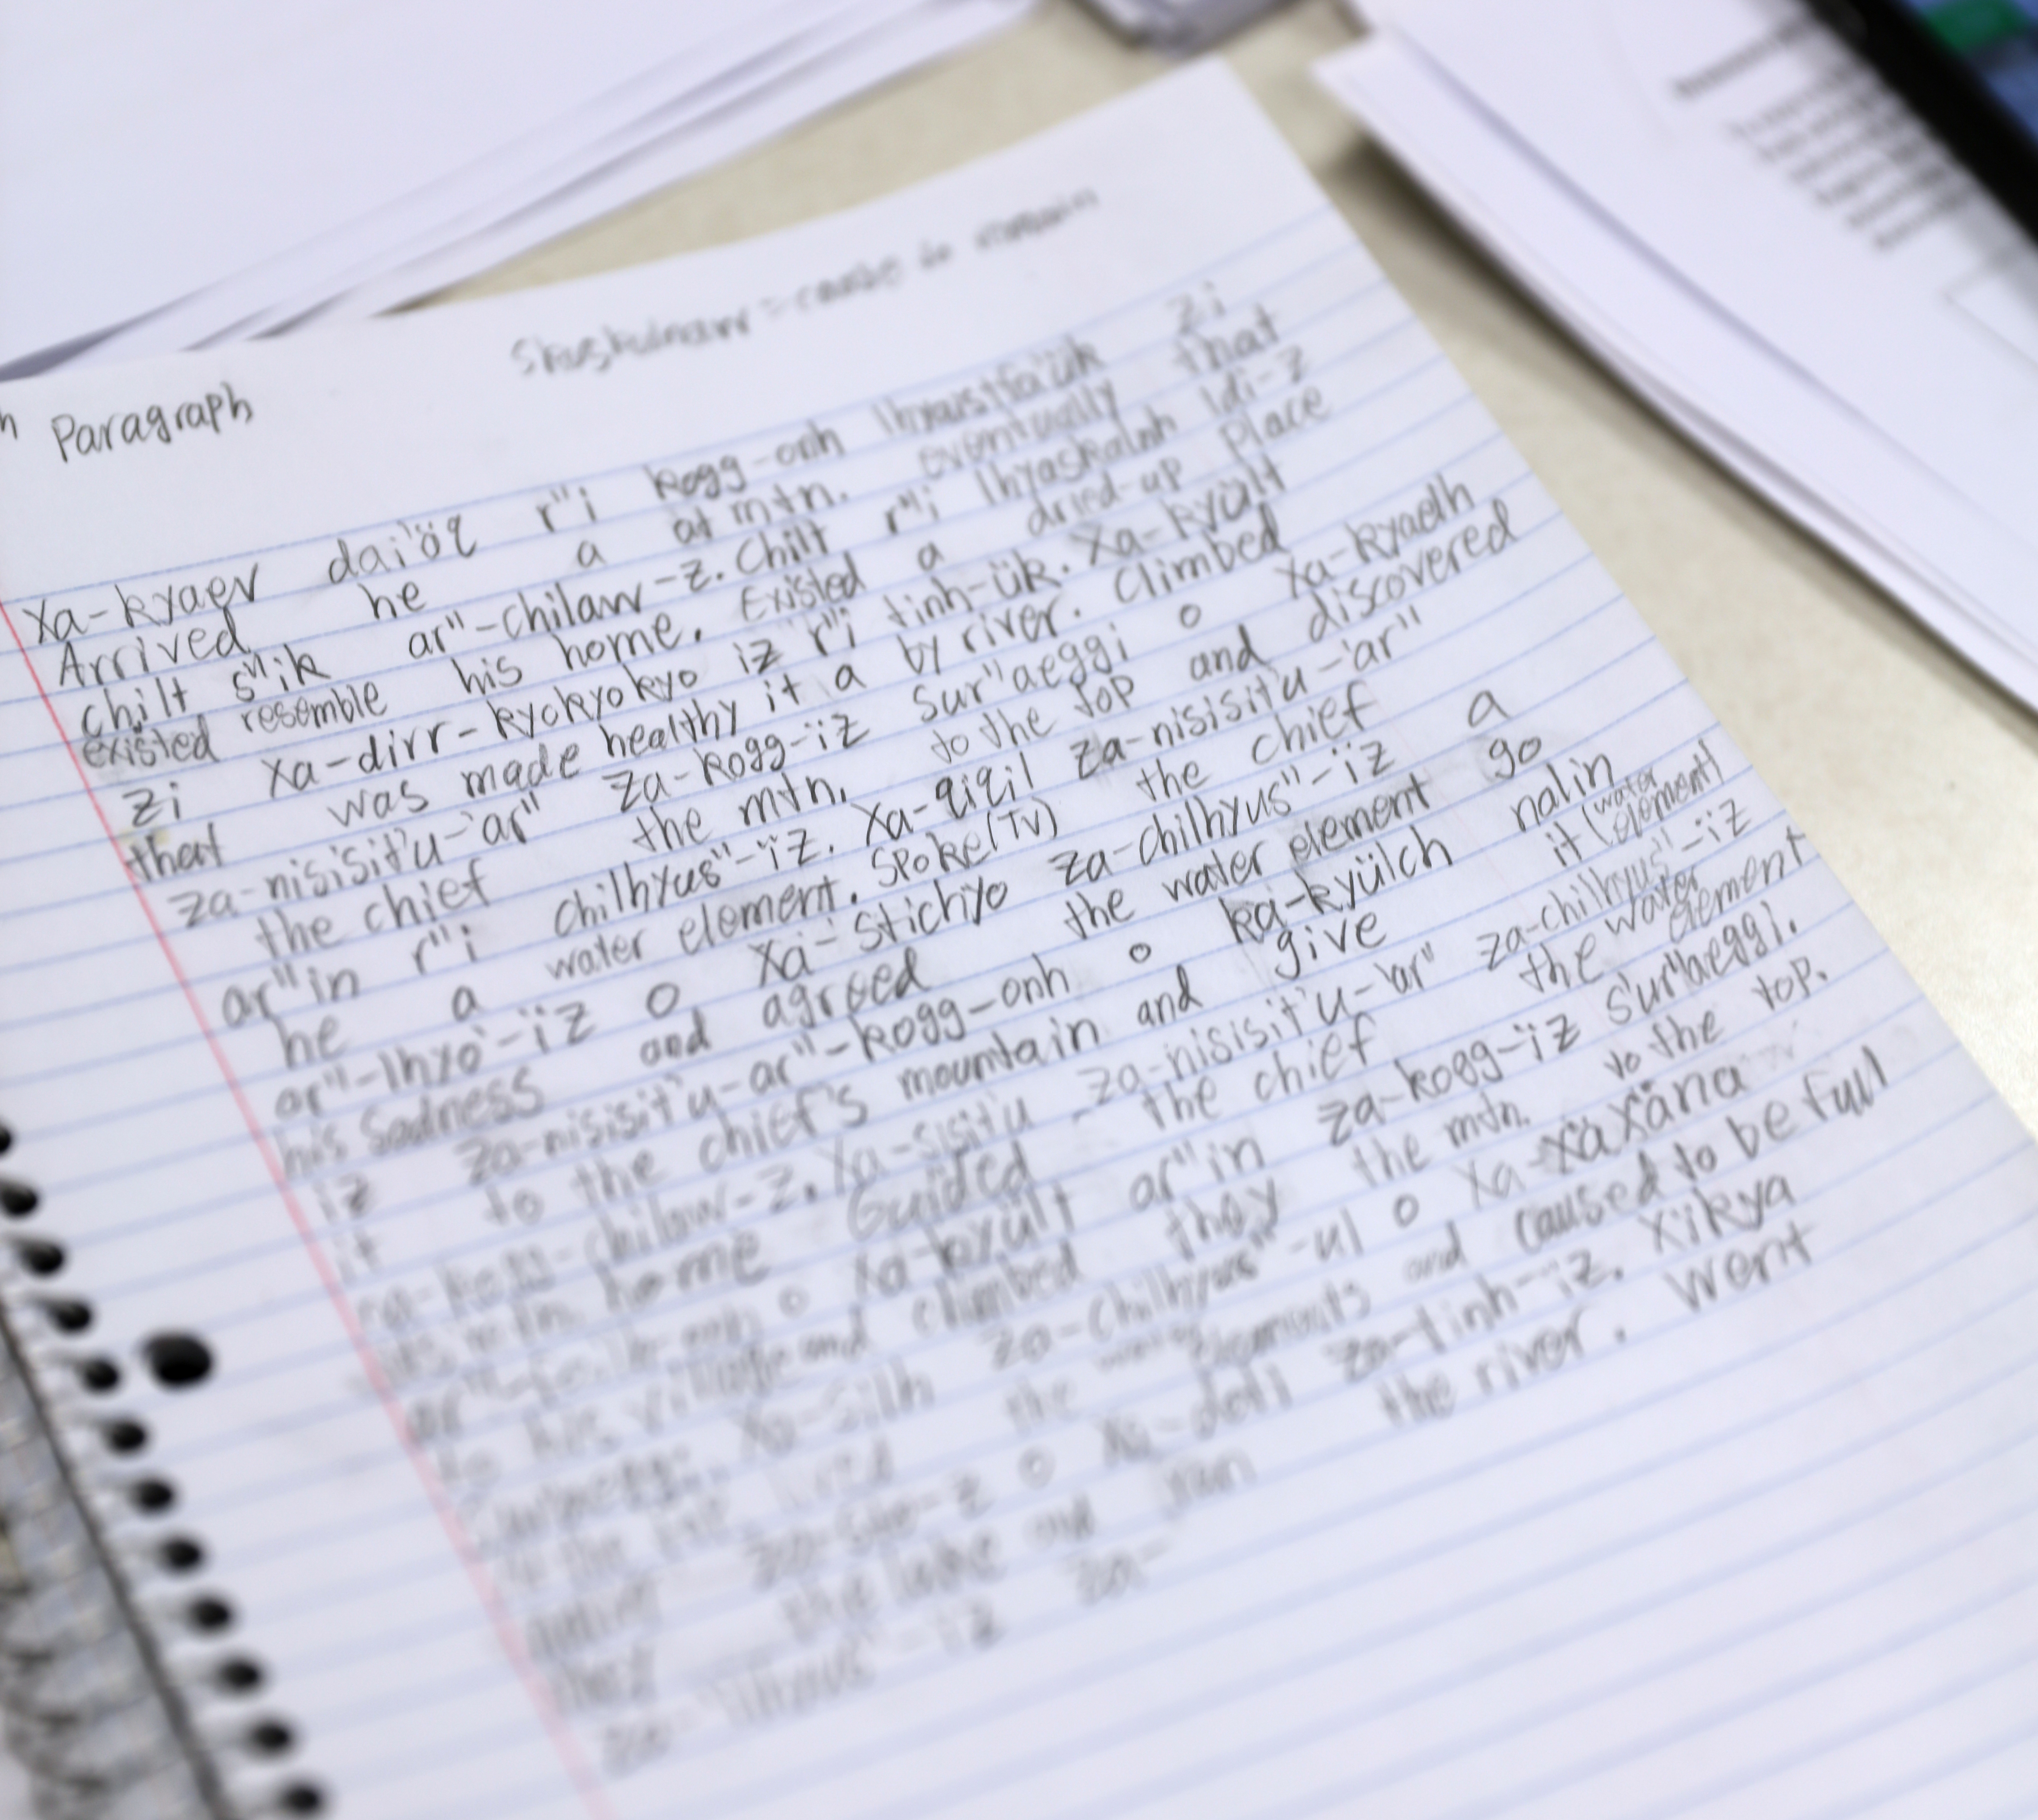 Paragraph
= cause to remain
Xa-kyaev dai'öq r"i kogg-onh zi
Arrived he a at mtn. eventually that
chilt s"ik ar"-chilaw-z. Chilt r"i lhyaskalnh idi-z
existed resemble his home. Existed a dried-up place
zi xa-dirr-kyokyokyo iz r"i tinh-ük. Xa-kyült
that was made healthy it a by river. Climbed
za-nisisit'u-'ar" za-kogg-ïz sur"aeggi o xa-kyaelh
the chief the mtn. to the top and discovered
ar"in r"i chilhyus"-ïz. Xa-qiqil za-nisisit'u-'ar"
he a water element. Spoke (TV) the chief
ar"-lhyo'-ïz o xa-stichyo za-chilhyus"-ïz a
his sadness and agreed the water element go
iz za-nisisit'u-ar"-kogg-onh o ka-kyülch nalin
it to the chief's mountain and give it (water element)
Xa-sisit'u za-nisisit'u-'ar" za-chilhyus"-ïz
home Guided the chief the water element
o xa-kyült ar"in za-kogg-ïz sur"aeggi.
to his village and climbed they the mtn. to the top.
za-chilhyus"-ul o xa-xäxäna
lived the water elements and caused to be full
o xa-doll za-tinh-ïz. Xïkya
they the lake and ran the river. Went
za-